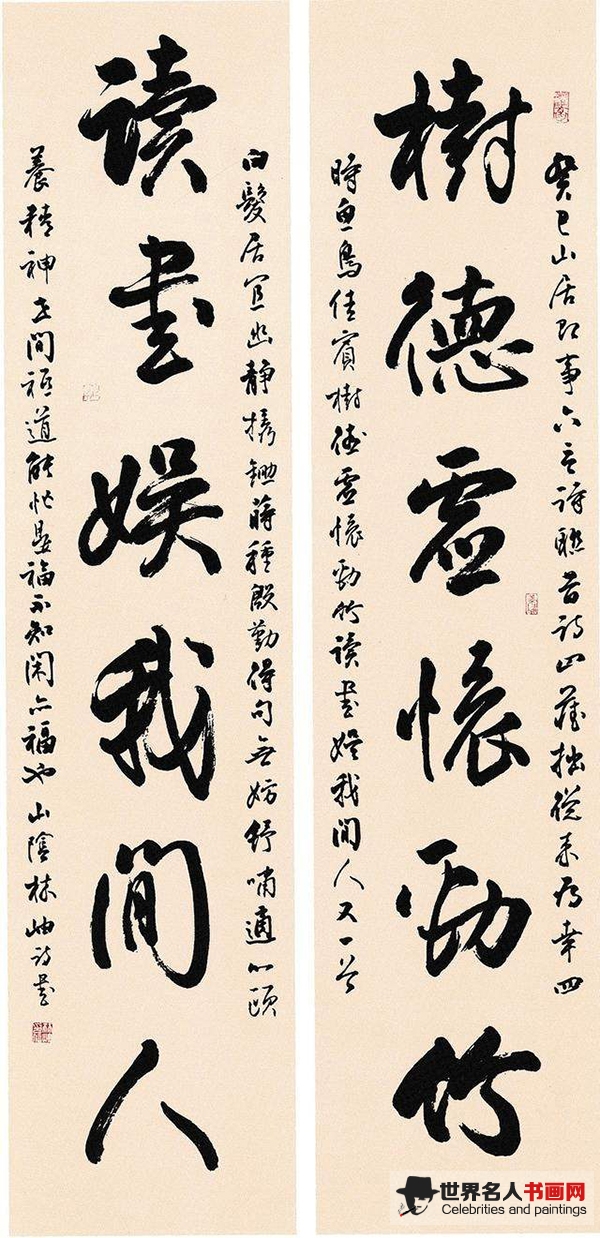 樹德虛懷勁竹
癸巳山居即事六言詩聯苔詩山藏拙從來為幸四
時魚鳥佳賓樹德虛懷勁竹读書娱我閒人又一首
读書娱我閒人
白髮居宜幽靜攜鋤蒔種殷勤得句無妨紓嘯適心頤
養精神世間祗道能忙是福不知闲亦福也山陰林岫詩書
世界名人书画网
Celebrities and paintings